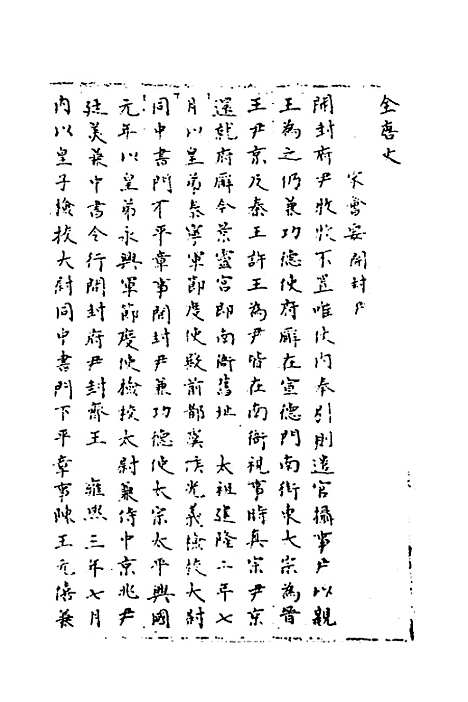 全唐文
宋會要開封尹
開封府尹牧牧不置唯伏內奉引則遣官攝事尹以親
王為之仍兼功德使府廨在宣德門南街東大宗為晉
王尹京及秦王許王為尹皆在南衙視事時真宗尹京
還就府廨今景靈宮即南衙舊址 太祖建隆二年七
月以皇弟泰寧軍節度使殿前都虞侯光義檢校大尉
同中書門下平章事開封尹兼功德使太宗太平興國
元年以皇弟永興軍節度使檢校太尉兼侍中京兆尹
廷美兼中書令行開封府尹封齊王 雍熙三年七月
內以皇子檢校大尉同中書門下平章事陳王元僖兼